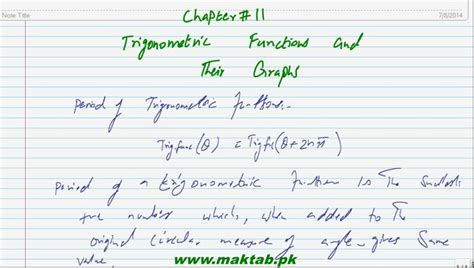 Note Title
7/8/2014
Chapter # 11
Trigonometric Functions and
Their Graphs
Period of Trigonometric functions.
Trigfunc(θ) = Trigfn(θ+2nπ)
Period of a trigonometric function is The Smallest
+ve number which, when added to The
original circular measure of angle, gives Same
value
www.maktab.pk